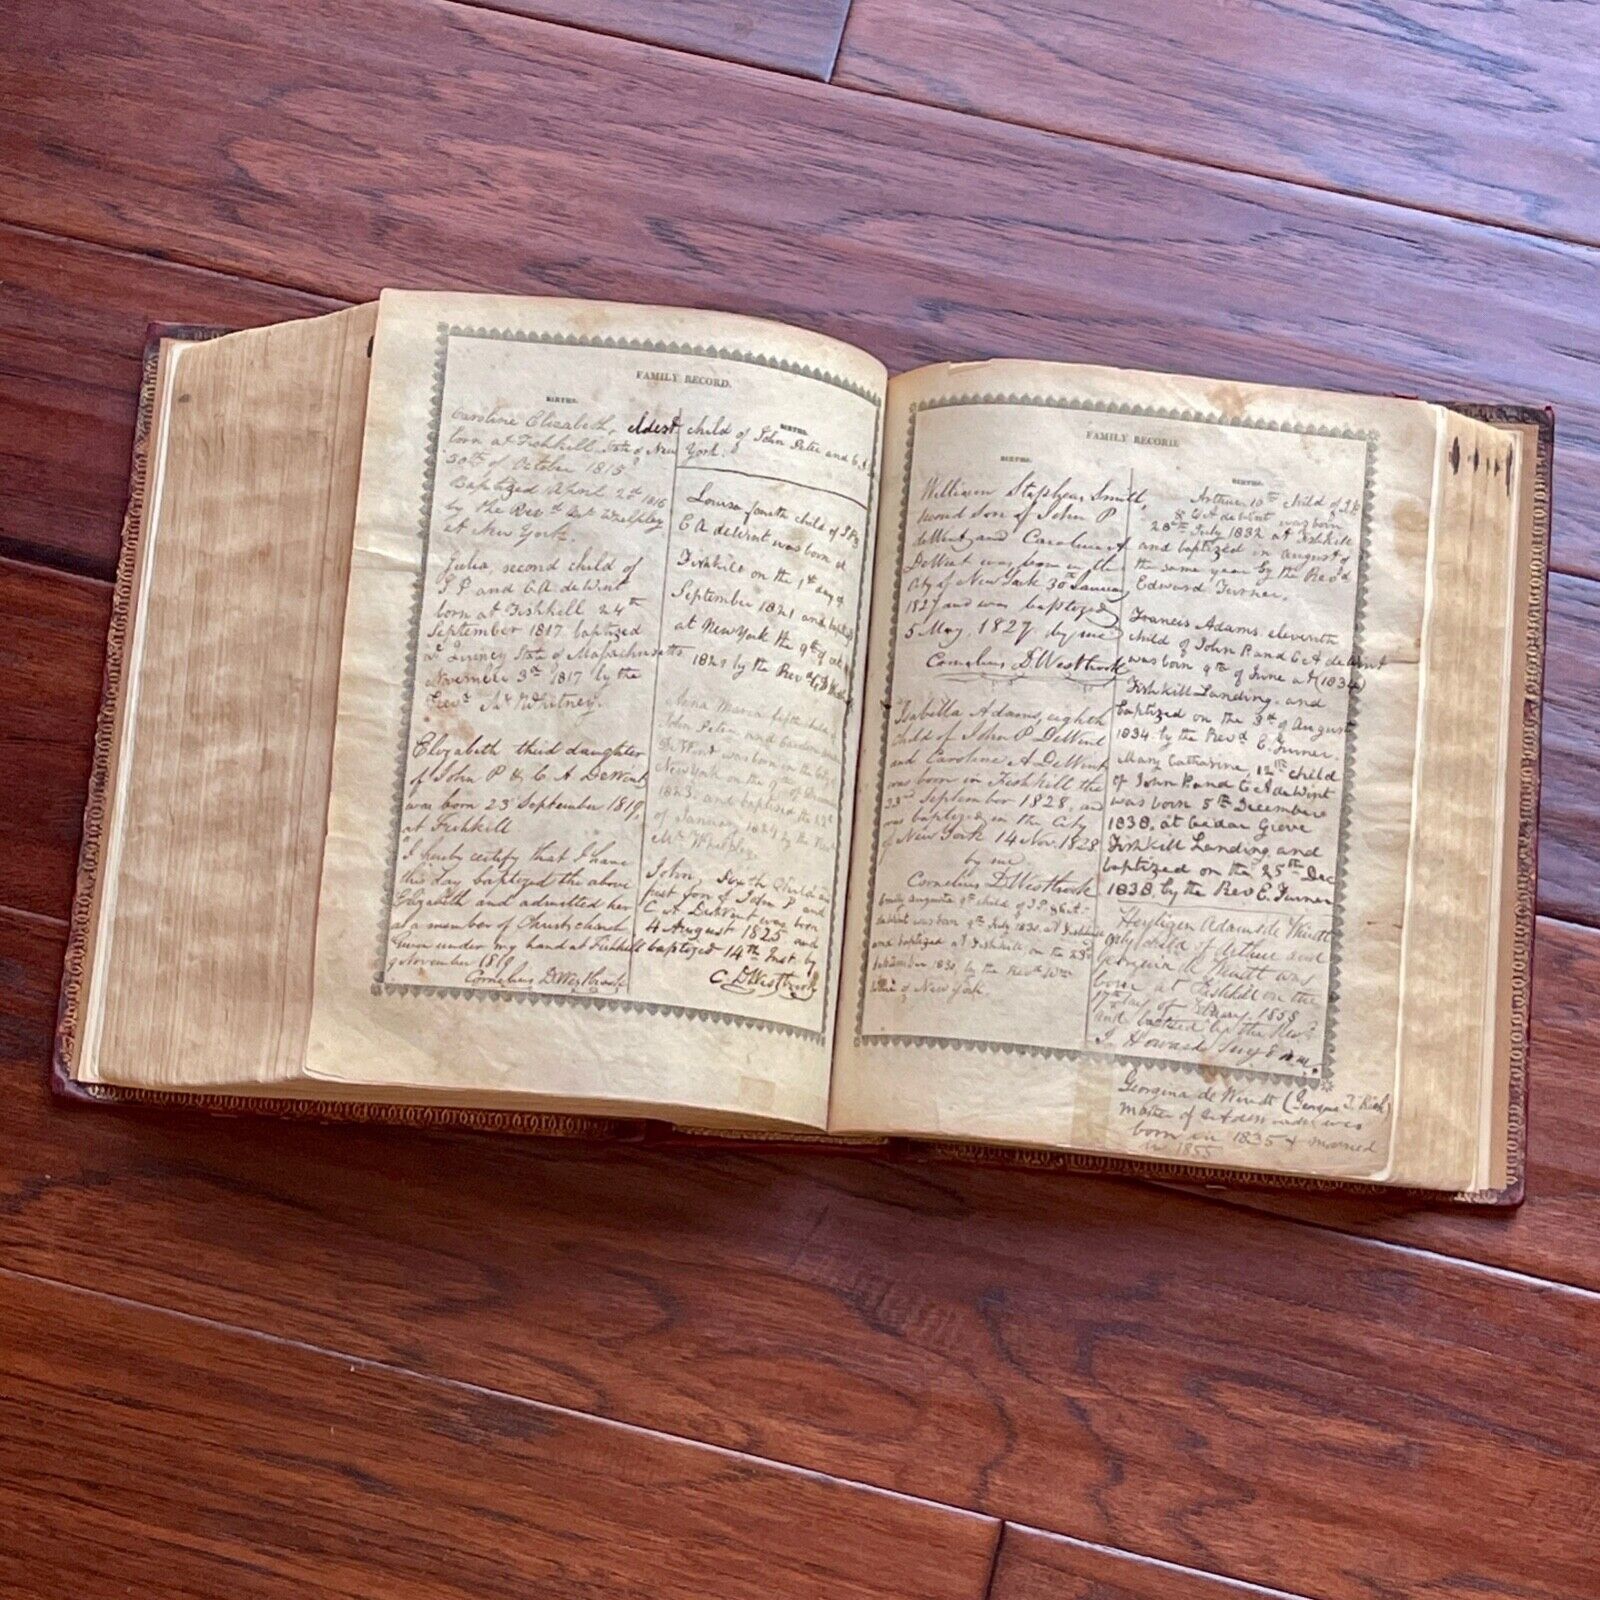 FAMILY RECORD.
BIRTHS.
Caroline Elizabeth, eldest child of John Peter and C. A.
born at Fishkill State of New York.
30th of October 1815
Baptized April 2d 1816
by the Revd Whelpley
at New York.
Julia, second child of
J P and C. A. deWint
born at Fishkill 24th
September 1817 baptized
at Quincy State of Massachusetts
November 3d 1817 by the
Revd Whitney.
Elizabeth third daughter
of John P & C A DeWint
was born 23 September 1819,
at Fishkill
I hereby certify that I have
this day baptized the above
Elizabeth and admitted her
as a member of Christs church
Given under my hand at Fishkill
9 November 1819
Cornelius D Westbrook
BIRTHS.
Louisa fourth child of J P &
C A deWint was born at
Fishkill on the day of
September 1821 and baptized
at New York the 9th of
1821 by the Revd
Anna Maria fifth child of
John Peter and Caroline
DeWint was born in the City of
New York on the 9th of December
1823. and baptized the
of January 1824 by the Revd
Mr Whelpley
John, Sixth Child and
first son of John P and
C. A DeWint was born
4 August 1825 and
baptized 14th Inst. by
C. D Westbrook
FAMILY RECORD.
BIRTHS.
William Stephens Smith,
second son of John P
deWint and Caroline A
DeWint was born in the
City of New York 30th January
1827 and was baptized
5 May, 1827 by me
Cornelius D Westbrook
Isabella Adams, eighth
child of John P DeWint
and Caroline A DeWint
was born in Fishkill the
23d September 1828, and
was baptized in the City
of New York 14 Nov. 1828
by me.
Cornelius D Westbrook
Emily Augusta 9th child of J. P. & C. A.
deWint was born 9th July 1830. at Fishkill
and baptized at Fishkill on the 23d
1830, by the Revd Wm
of New York.
BIRTHS.
Arthur 10th child of J. P
& C A deWint was born
28th July 1832 at Fishkill
and baptized in august of
the same year by the Revd
Edward Turner.
Francis Adams, eleventh
child of John P. and C A deWint
was born 9th of June at (1834)
Fishkill Landing. and
baptized on the 3d of August
1834 by the Revd E. Turner.
Mary Catharine, 12th child
of John P. and C A deWint
was born 5th December
1838, at Cedar Grove
Fishkill Landing, and
baptized on the 25th Dec
1838, by the Rev E. Turner
Heyliger Adams de Windt
only child of Arthur and
Georgina de Windt was
born at Fishkill on the
17th day of 1858
and baptized by the Revd
Georgina de Windt
Mother of
born in 1835 & married
in 1855